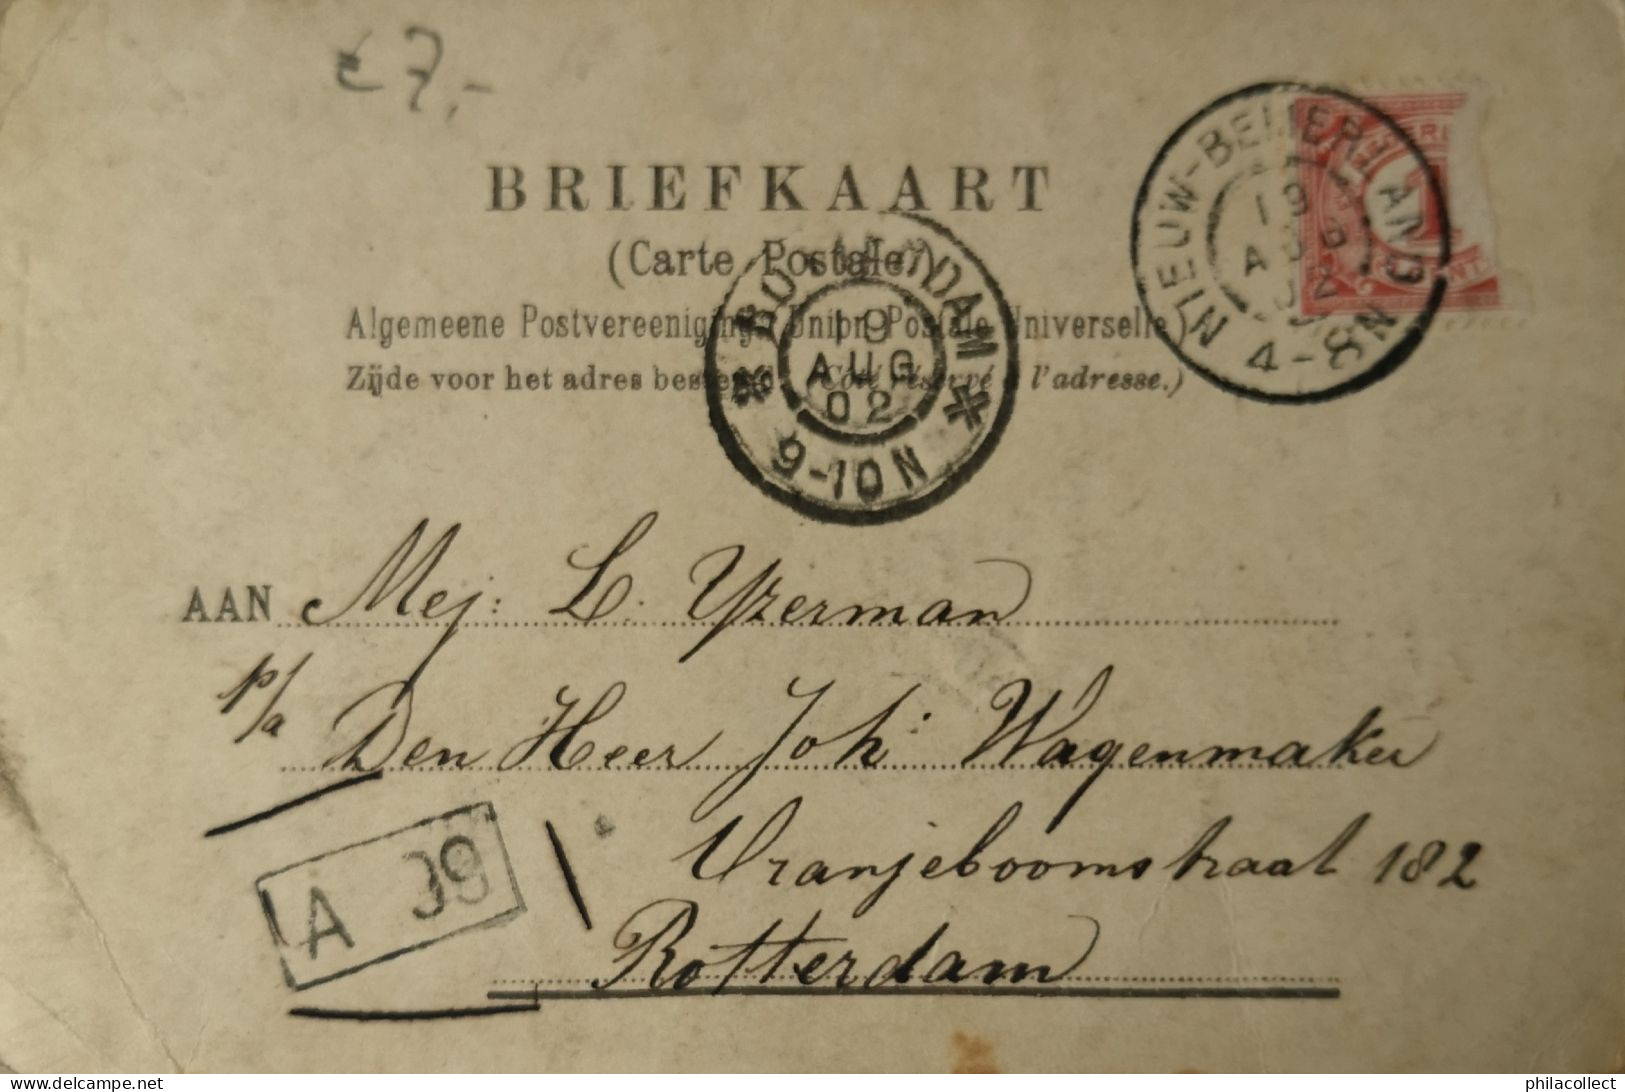 €7,-
BRIEFKAART
(Carte Postale)
Algemeene Postvereeniging (Union Postale Universelle)
Zijde voor het adres bestemd. (Côté réservé à l'adresse.)
NIEUW-BEIJERLAND
19
AUG
02
4-8N
1
ROTTERDAM
19
AUG
02
9-10N
AAN Mej: L. Yzerman
p/a
Den Heer Joh: Wagenmaker
Oranjeboomstraat 182
Rotterdam
A 39
delcampe.net
philacollect